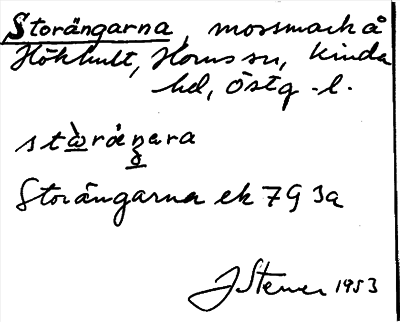 Storängarna, mossmark å
Hökhult, Horns sn, Kinda
hd, Östg. l.
Storängarna ek 7G 3a
J Stener 1953